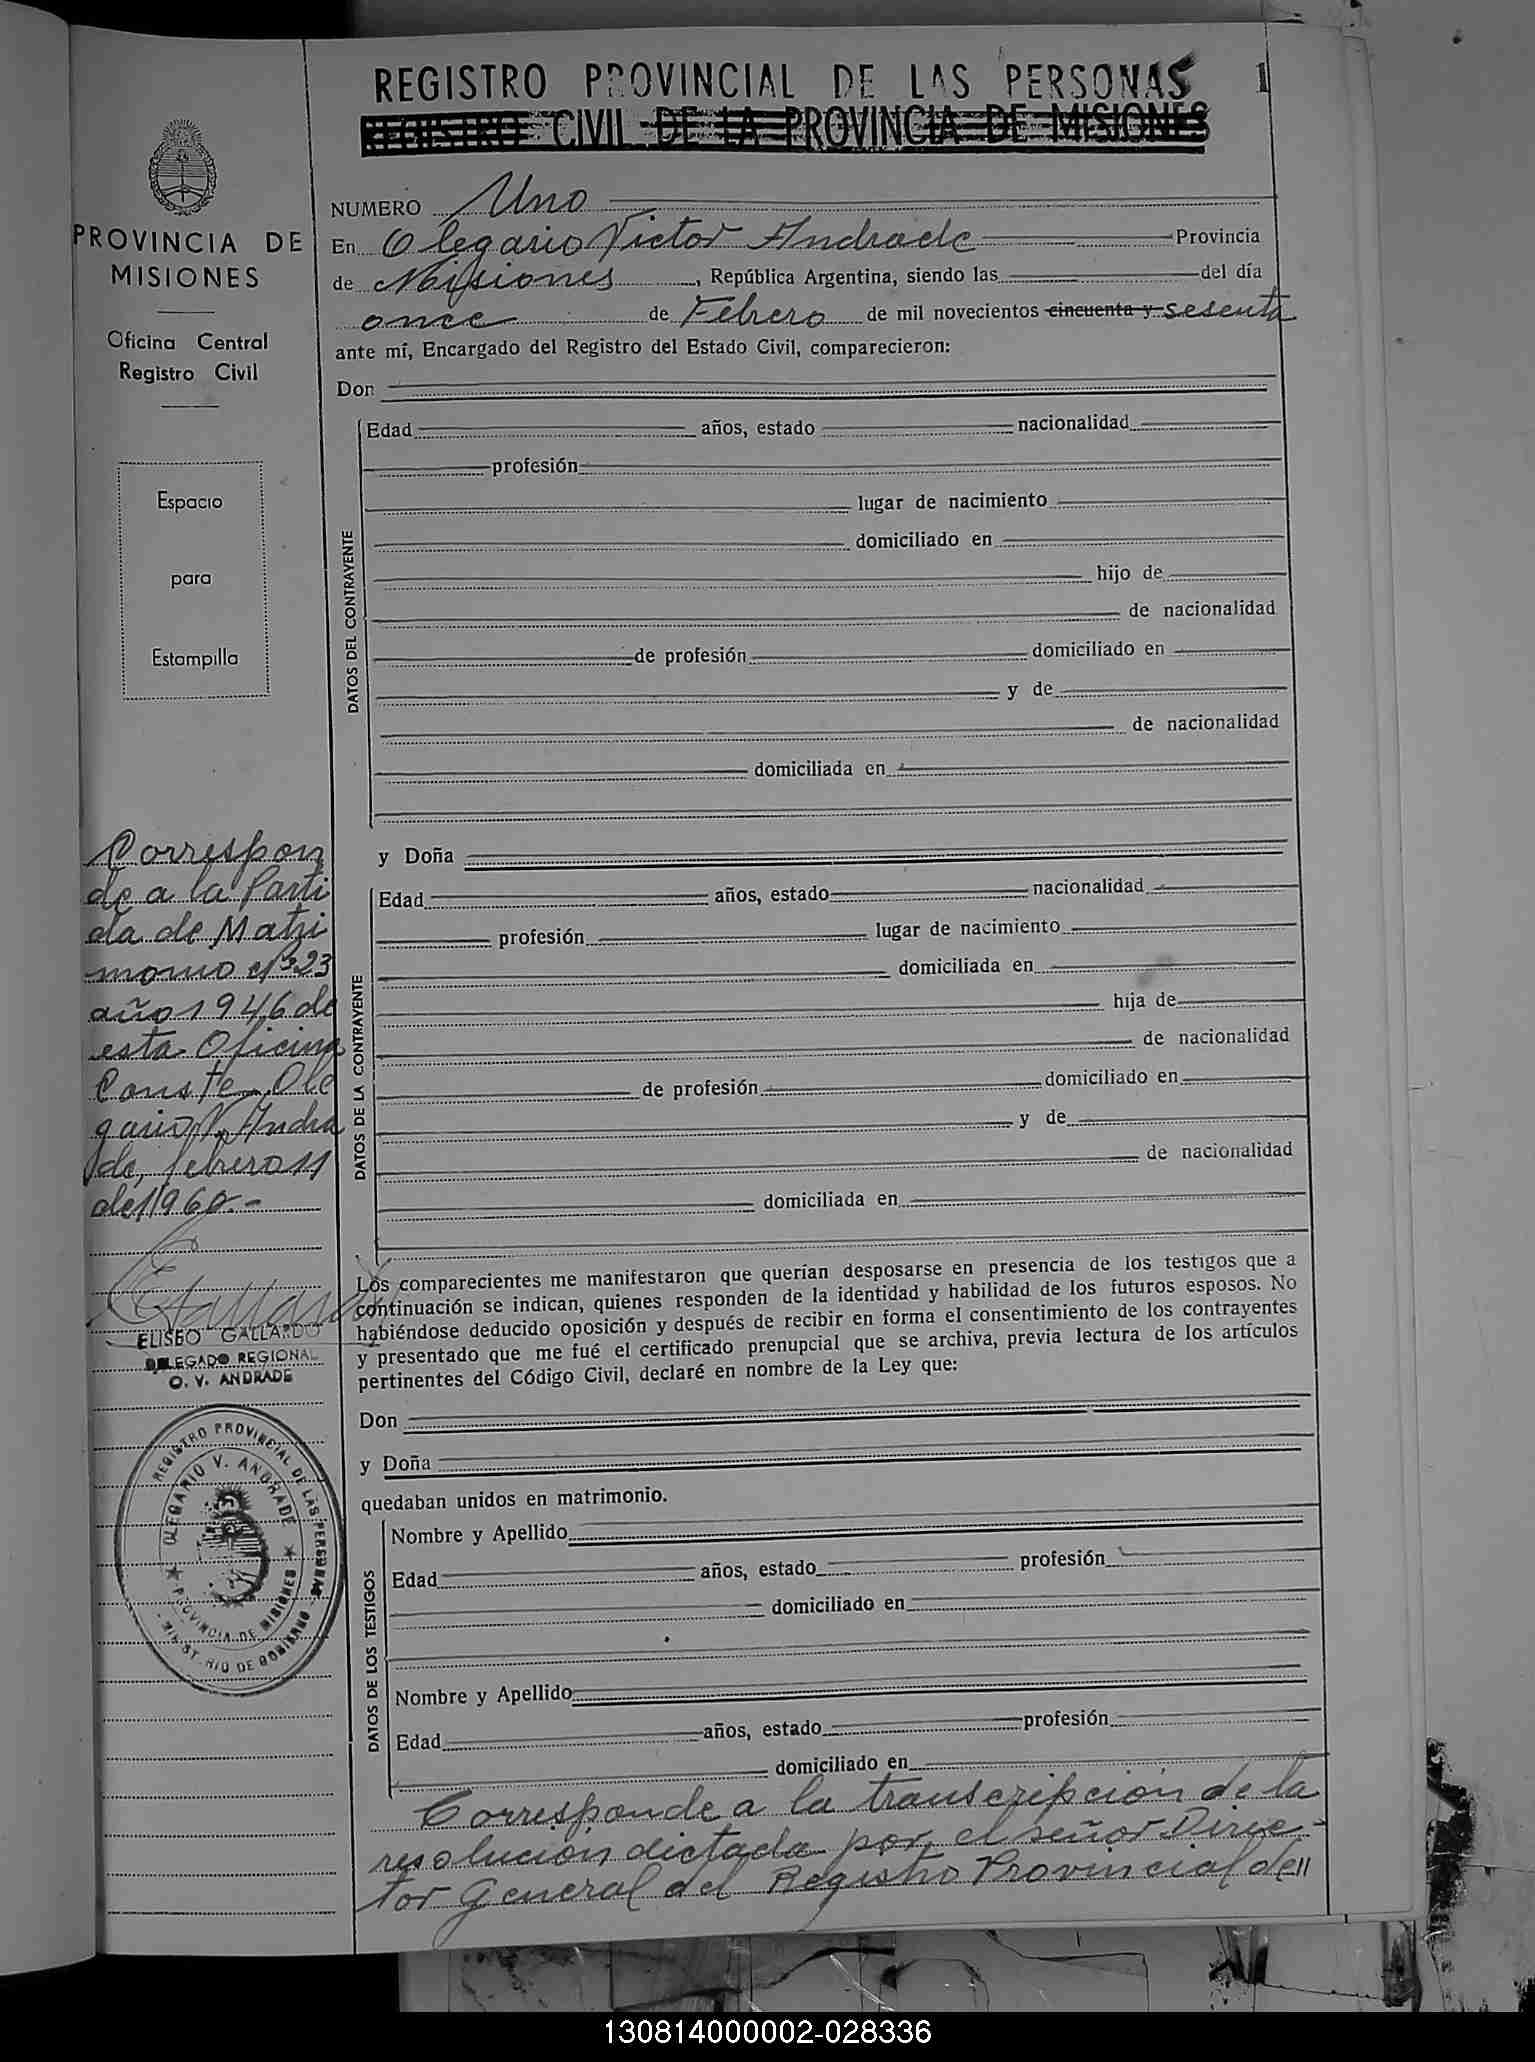 REGISTRO PROVINCIAL DE LAS PERSONAS
1
REGISTRO CIVIL DE LA PROVINCIA DE MISIONES
PROVINCIA DE
MISIONES
Oficina Central
Registro Civil
Espacio
para
Estampilla
NUMERO Uno
En Olegario Victor Andrade Provincia
de Misiones, República Argentina, siendo las del día
once de Febrero de mil novecientos cincuenta y sesenta
ante mí, Encargado del Registro del Estado Civil, comparecieron:
Don
DATOS DEL CONTRAYENTE
Edad años, estado nacionalidad
profesión
lugar de nacimiento
domiciliado en
hijo de
de nacionalidad
de profesión domiciliado en
y de
de nacionalidad
domiciliada en
y Doña
DATOS DE LA CONTRAYENTE
Edad años, estado nacionalidad
profesión lugar de nacimiento
domiciliada en
hija de
de nacionalidad
de profesión domiciliado en
y de
de nacionalidad
domiciliada en
Correspon
de a la Parti
da de Matri
monio Nº 23
año 1946 de
esta Oficina
Conste Ole
gario V. Andra
de, febrero 11
de 1960.-
EGallardo
ELISEO GALLARDO
DELEGADO REGIONAL
O. V. ANDRADE
REGISTRO PROVINCIAL DE LAS PERSONAS
OLEGARIO V. ANDRADE
PROVINCIA DE MISIONES
MINISTERIO DE GOBIERNO
Los comparecientes me manifestaron que querían desposarse en presencia de los testigos que a
continuación se indican, quienes responden de la identidad y habilidad de los futuros esposos. No
habiéndose deducido oposición y después de recibir en forma el consentimiento de los contrayentes
y presentado que me fué el certificado prenupcial que se archiva, previa lectura de los artículos
pertinentes del Código Civil, declaré en nombre de la Ley que:
Don
y Doña
quedaban unidos en matrimonio.
DATOS DE LOS TESTIGOS
Nombre y Apellido
Edad años, estado profesión
domiciliado en
Nombre y Apellido
Edad años, estado profesión
domiciliado en
Corresponde a la transcripción de la
resolución dictada por el señor Direc-
tor General del Registro Provincial de//
130814000002-028336